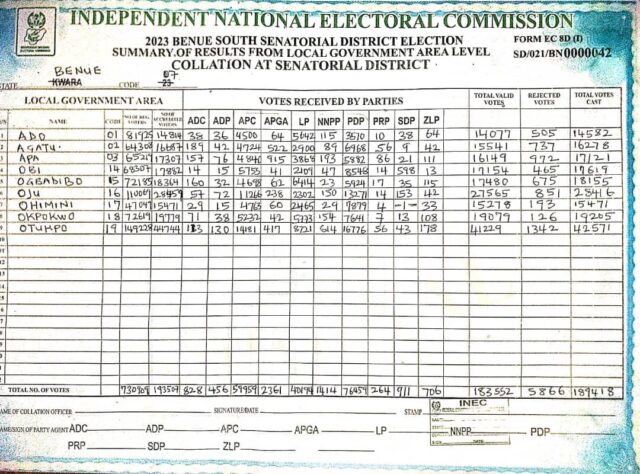 INDEPENDENT NATIONAL ELECTORAL COMMISSION
2023 BENUE SOUTH SENATORIAL DISTRICT ELECTION
FORM EC 8D (I)
SUMMARY OF RESULTS FROM LOCAL GOVERNMENT AREA LEVEL
SD/021/BN0000042
COLLATION AT SENATORIAL DISTRICT
STATE BENUE KWARA CODE 07 23
LOCAL GOVERNMENT AREA VOTES RECEIVED BY PARTIES TOTAL VALID VOTES REJECTED VOTES TOTAL VOTES CAST
NAME CODE ADC ADP APC APGA LP NNPP PDP PRP SDP ZLP
ADO 01 81925 14814 38 36 4500 64 5642 115 3570 10 38 64 14077 505 14582
AGATU 02 64308 16687 189 42 4724 522 2900 89 6968 56 9 42 15541 737 16278
APA 03 65217 17307 157 76 4840 915 3868 193 5882 86 21 111 16149 972 17121
OBI 14 68307 17882 14 15 5753 41 2109 47 8548 14 598 13 17154 465 17619
OGBADIBO 15 72185 18364 160 32 4698 62 6414 23 5924 17 35 115 17480 675 18155
OJU 16 28459 57 72 11246 238 2302 150 13271 14 153 42 27565 851 28416
OHIMINI 17 47047 15471 29 15 4763 60 2465 29 7879 4 -1- 33 15278 193 15471
OKPOKWO 18 72619 19779 71 38 5232 42 5773 154 7641 7 13 108 19079 126 19205
OTUKPO 19 149228 44744 113 130 14181 417 8721 614 16776 56 43 178 41229 1342 42571
TOTAL NO. OF VOTES 730809 193507 828 456 59959 2361 40194 1414 76459 264 911 706 183552 5866 189418
NAME OF COLLATION OFFICER SIGNATURE/DATE STAMP INEC
NAME/SIGN OF PARTY AGENT ADC ADP APC APGA LP NNPP PDP
PRP SDP ZLP